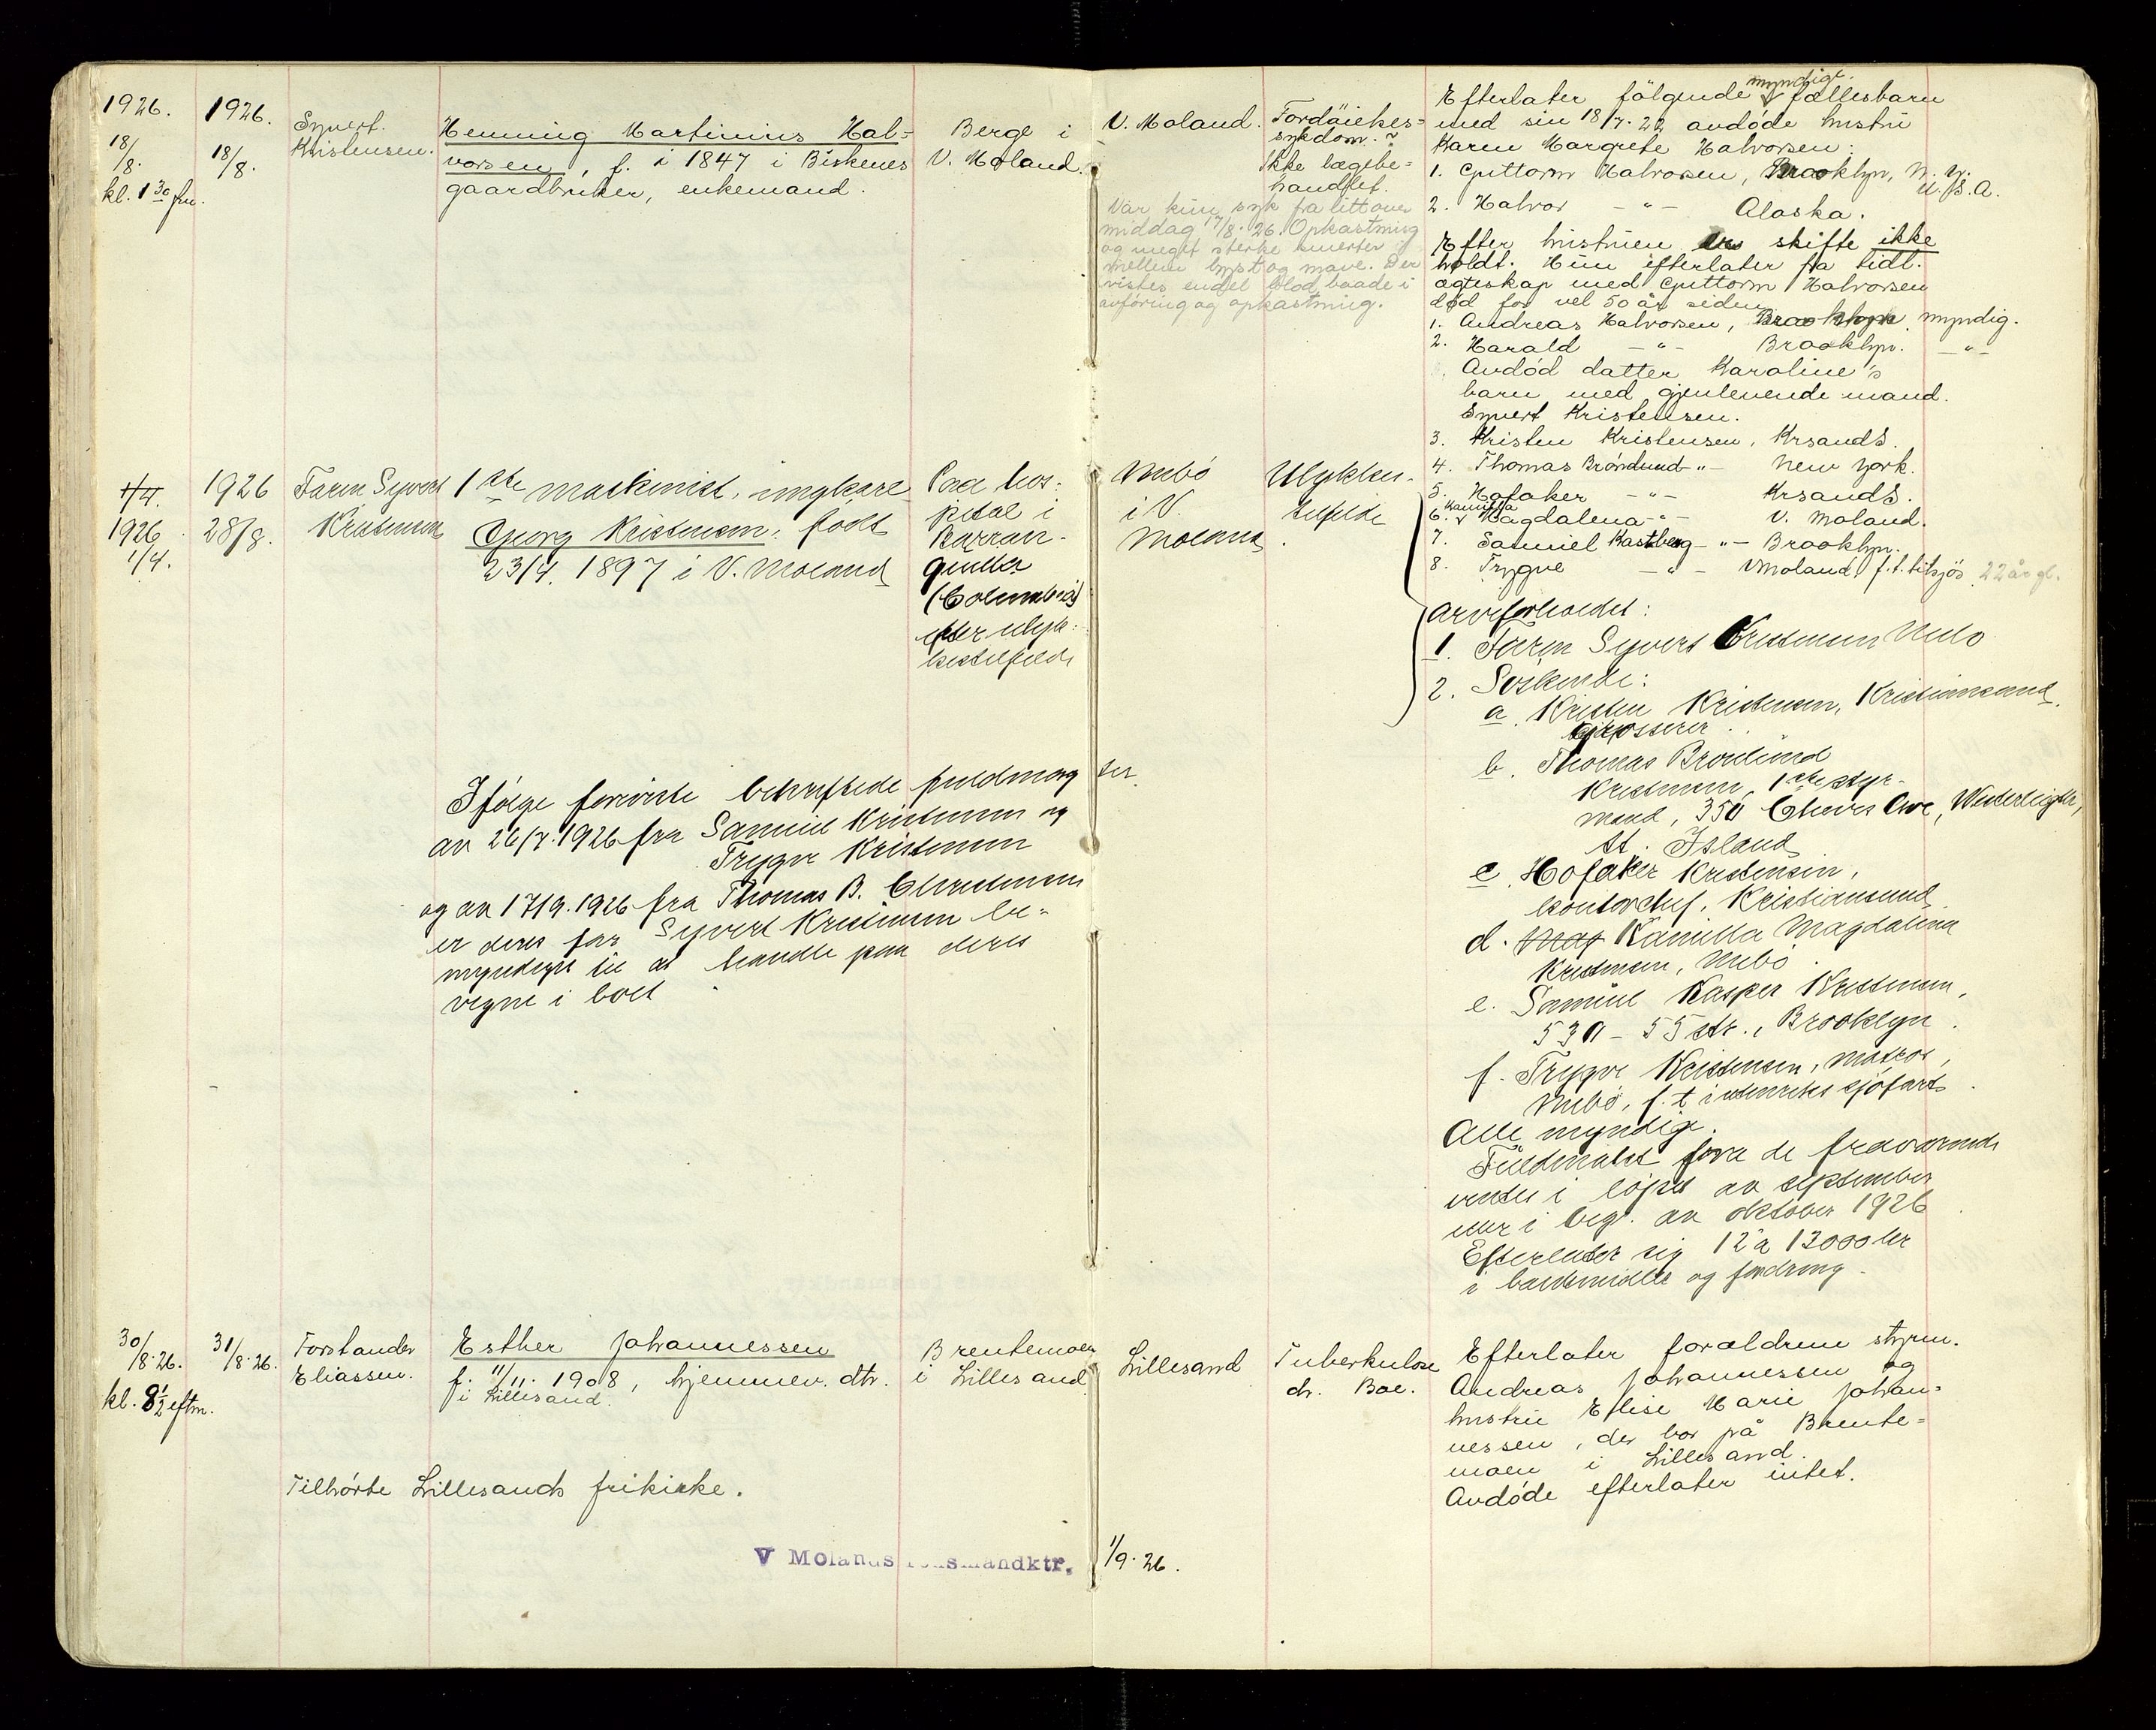 1926.
18/8.
kl. 1 30 fm.
1926.
18/8.
Syvert
Kristensen.
Henning Martinius Hal=
vorsen, f. i 1847 i Birkenes
gaardbruker, enkemand.
Berge i
V. Moland.
V. Moland.
Fordøielses=
sykdom.?
Ikke lægebe=
handlet.
Var kun syk fra litt over
middag 17/8.26. Opkastning
og meget sterke smerter
mellem bryst og mave. Der
vistes endel blod baade i
avføring og opkastning.
Efterlater følgende myndige fællesbarn
med sin 18/7.22 avdøde hustru
Karen Margrete Halvorsen:
1. Guttorm Halvorsen, Brooklyn, N. Y.
U.S.A.
2. Halvor -"- Alaska.
Efter hustruen er skifte ikke
holdt. Hun efterlater fra tidl.
ægteskap med Guttorm Halvorsen
død for vel 50 år siden
1. Andreas Halvorsen, Brooklyn, myndig.
2. Harald -"- Brooklyn. -"-
Avdød datter Karoline's
barn med gjenlevende mand.
Syvert Kristensen.
3. Kristen Kristensen, Krsand S.
4. Thomas Brönlund -"- New York.
5. Hofaker -"- Krsand S.
6. Kamilla Magdalena -"- V. Moland.
7. Samuel Kastberg -"- Brooklyn.
8. Trygve -"- V Moland, f.t. tilsjøs 22 år gl.
1/4.
1926
1/4.
1926
28/8.
Faren Syvert
Kristensen
1ste maskinist, ungkarl
Georg Kristensen, født
23/4. 1897 i V. Moland
Paa hos=
pital i
Barran-
quilla
(Columbia)
efter ulyk=
kestilfelde
Mebö
i V.
Moland
Ulykkes-
tilfelde
Arveforholdet:
1. Faren Syvert Kristensen Mebö
2. Søskende:
a. Kristen Kristensen, Kristiansand,
grosserer
b. Thomas Brönlund
Kristensen, 1ste styr-
mand, 350 Cheves Ave, Westerleigh,
St. Island
c. Hofaker Kristensen,
kontorchef, Kristiansand
d. Mag Kamilla Magdalena
Kristensen, Mebö
e. Samuel Kasper Kristensen,
530 - 55 str., Brooklyn
f. Trygve Kristensen, matros,
Mebö, f.t. i utenriks sjøfart
Alle myndige.
Fuldmakt fra de fraværende
ventes i løpet av september
eller i beg. av oktober 1926
Efterlater sig 12 a 13000 kr
i bankmidler og fordring
Ifølge foreviste bekræftede fuldmagter
av 26/7.1926 fra Samuel Kristensen og
Trygve Kristensen
og av 17/9.1926 fra Thomas B. Christensen
er deres far Syvert Kristensen be-
myndiget til at handle paa deres
vegne i boet
30/8.26.
kl. 8½ eftm.
31/8.26.
Forstander
Eliassen.
Esther Johannessen
f. 11/11. 1908, hjemmev. dtr.
i Lillesand.
Brentemoen
i Lillesand
Lillesand
Tuberkulose
dr. Boe.
Efterlater forældrene styrm.
Andreas Johannessen og
hustru Elise Marie Johan=
nessen, der bor på Brente=
moen i Lillesand.
Avdøde efterlater intet.
Tilhørte Lillesands frikirke.
V Molands lensmandktr. 1/9.26.